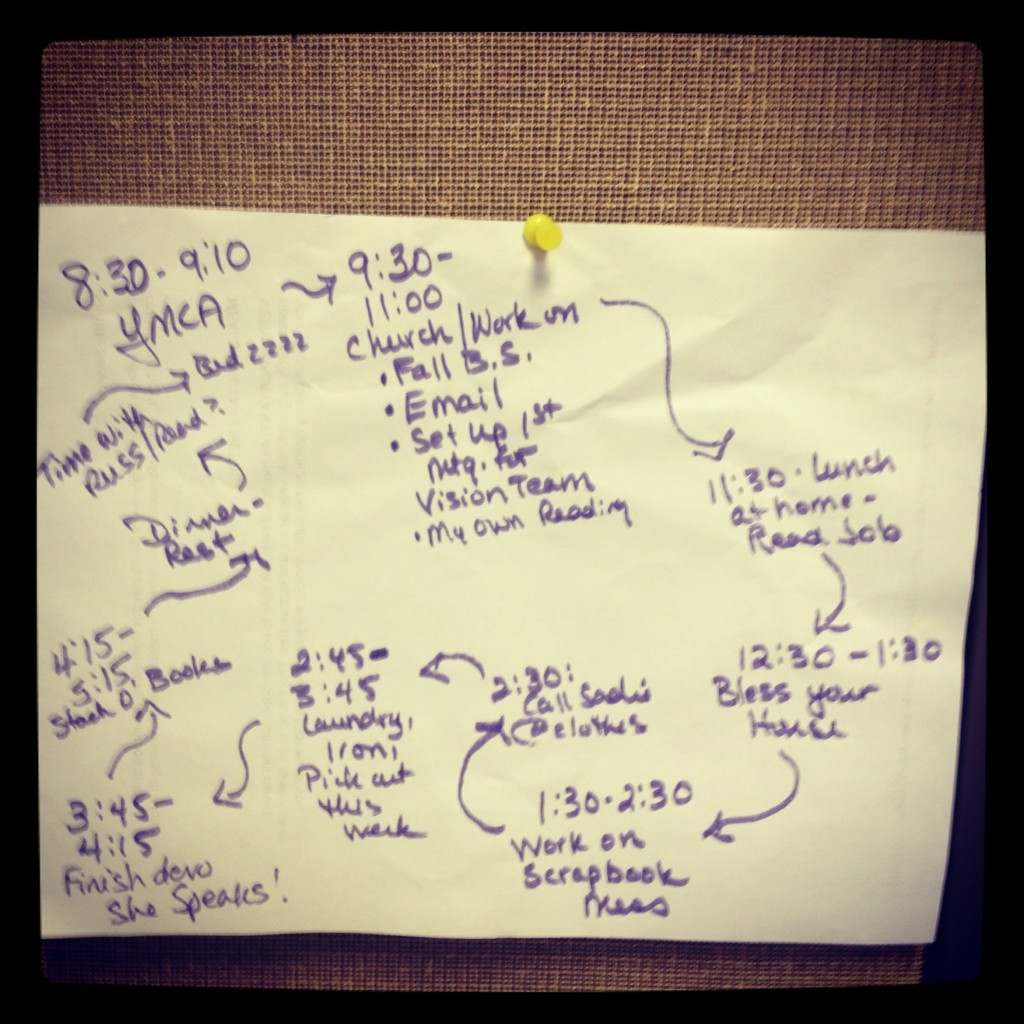 8:30 - 9:10
YMCA
9:30-
11:00
Church/Work on
• Fall B.S.
• Email
• Set up 1st
mtg. for
Vision Team
• My own Reading
11:30 - Lunch
at home -
Read Job
12:30 - 1:30
Bless your
House
1:30 - 2:30
Work on
Scrapbook
Mess
2:30:
Call Sadie
clothes
2:45-
3:45
Laundry,
Iron,
Pick out
this
week
3:45-
4:15
Finish devo
She Speaks!
4:15-
5:15
Stack O' Books
Dinner-
Rest
Time with
Russ/Read?
Bed zzzz